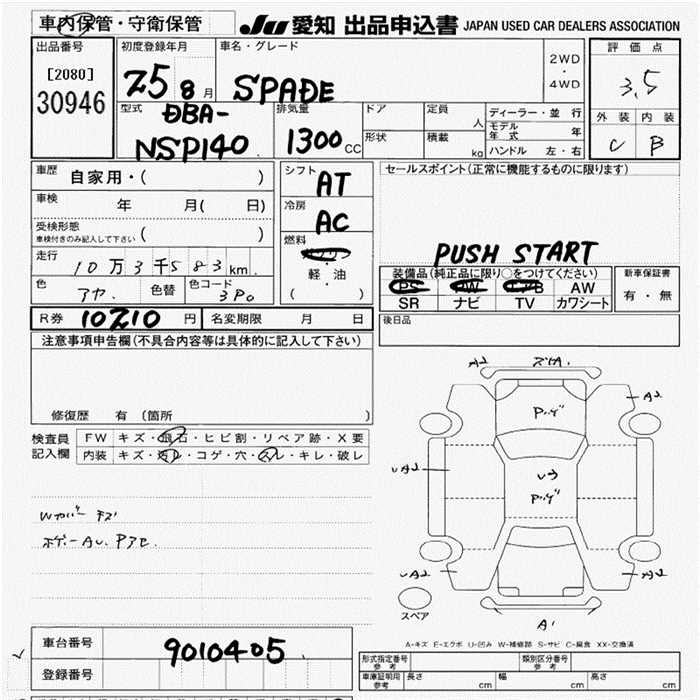 車内保管・守衛保管 JU 愛知 出品申込書 JAPAN USED CAR DEALERS ASSOCIATION
出品番号 初度登録年月 車名・グレード 2WD・4WD 評価点
[2080] 25 8月 SPADE 3.5
30946 型式 DBA- 排気量 ドア 定員 人 ディーラー・並行 外装 内装
NSP140 1300 CC 形状 積載 kg モデル年式 年 C B
ハンドル 左・右
車歴 自家用・( ) シフト AT セールスポイント(正常に機能するものに限ります)
車検 年 月( 日) 冷房 AC
受検形態 車検付きのみ記入して下さい ( ) 燃料 PUSH START
走行 10万3千583km 軽・油 装備品(純正品に限り○をつけてください) 新車保証書
色 アカ 色替 色コード 3P0 ( ) PS AW エアB AW 有・無
SR ナビ TV カワシート
R券 10210円 名変期限 月 日 後日品
注意事項申告欄(不具合内容等は具体的に記入して下さい)
修復歴 有 (箇所 )
検査員 FW キズ・飛石・ヒビ割・リペア跡・X要
記入欄 内装 キズ・汚レ・コゲ・穴・スレ・キレ・破レ
A2
A2
UA2
UA2
A2
A1
スペア
A-キズ E-エクボ U-凹み W-補修跡 S-サビ C-腐食 XX-交換済
車台番号 9010405
登録番号
形式指定番号 参考 類別区分番号 参考
車庫証明用 参考 長さ cm 幅 cm 高さ cm